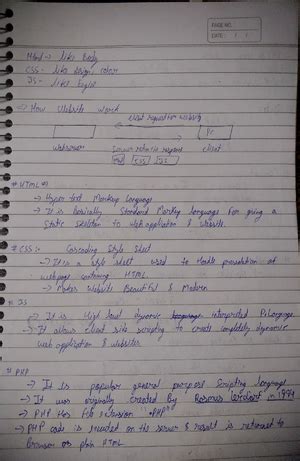 PAGE NO.
DATE: / /
Html → like Body
CSS - like design, color
JS - like Engine
→ How Website Work
client request for website
Webserver
PC
client
Server return respond
CSS
# HTML →
→ Hyper text Markup Language
→ It is basically Standard Markup language for giving a
Static skeleton to Web application & website.
# CSS :-
Cascading Style Sheet
→ It is a style sheet used to Handle presentation of
webpage containing HTML
→ Makes Website Beautiful & Modern
# JS
→ It is High level dynamic interpreted P.Language
→ It allows client site scripting to create completely dynamic
web application & websites
# PHP
→ It is popular general purpose Scripting language
→ It was originally created by Rasmus Lerdorf in 1994
→ PHP Has File extension .PHP
→ PHP code is executed on the server & result is returned to
Browser as plain HTML